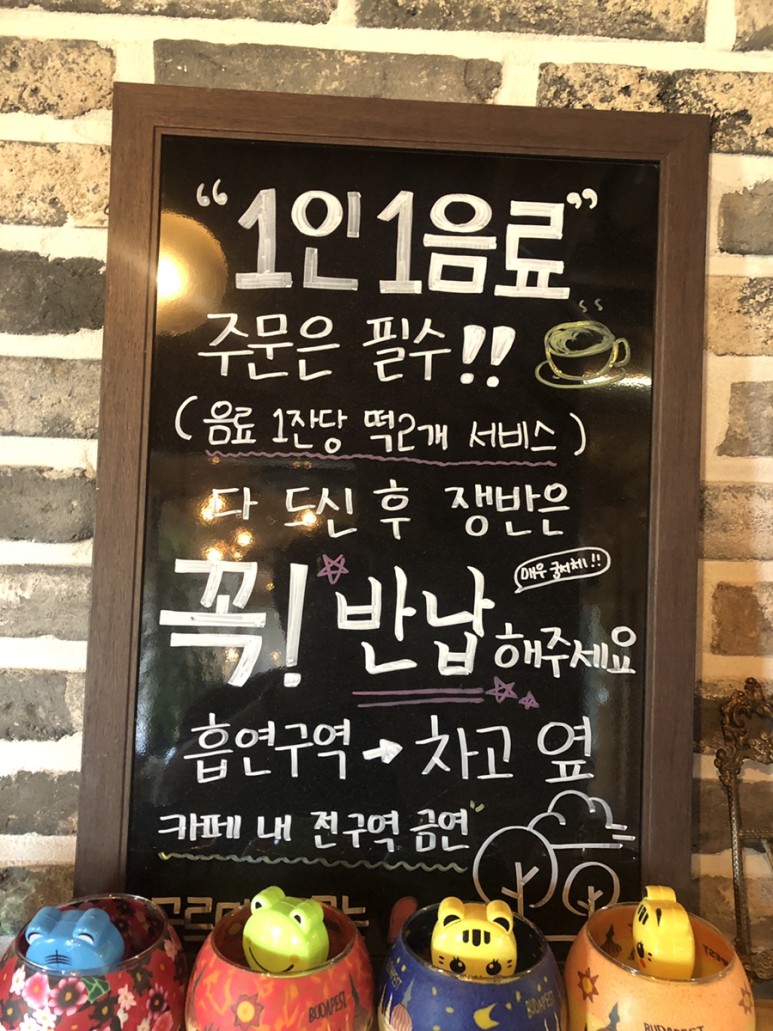 “1인 1음료”
주문은 필수!!
(음료 1잔당 떡2개 서비스)
다 드신 후 쟁반은
꼭! 반납 해주세요
흡연구역 → 차고 옆
카페 내 전구역 금연
BUDAPEST
BUDAPEST
BUDAPEST